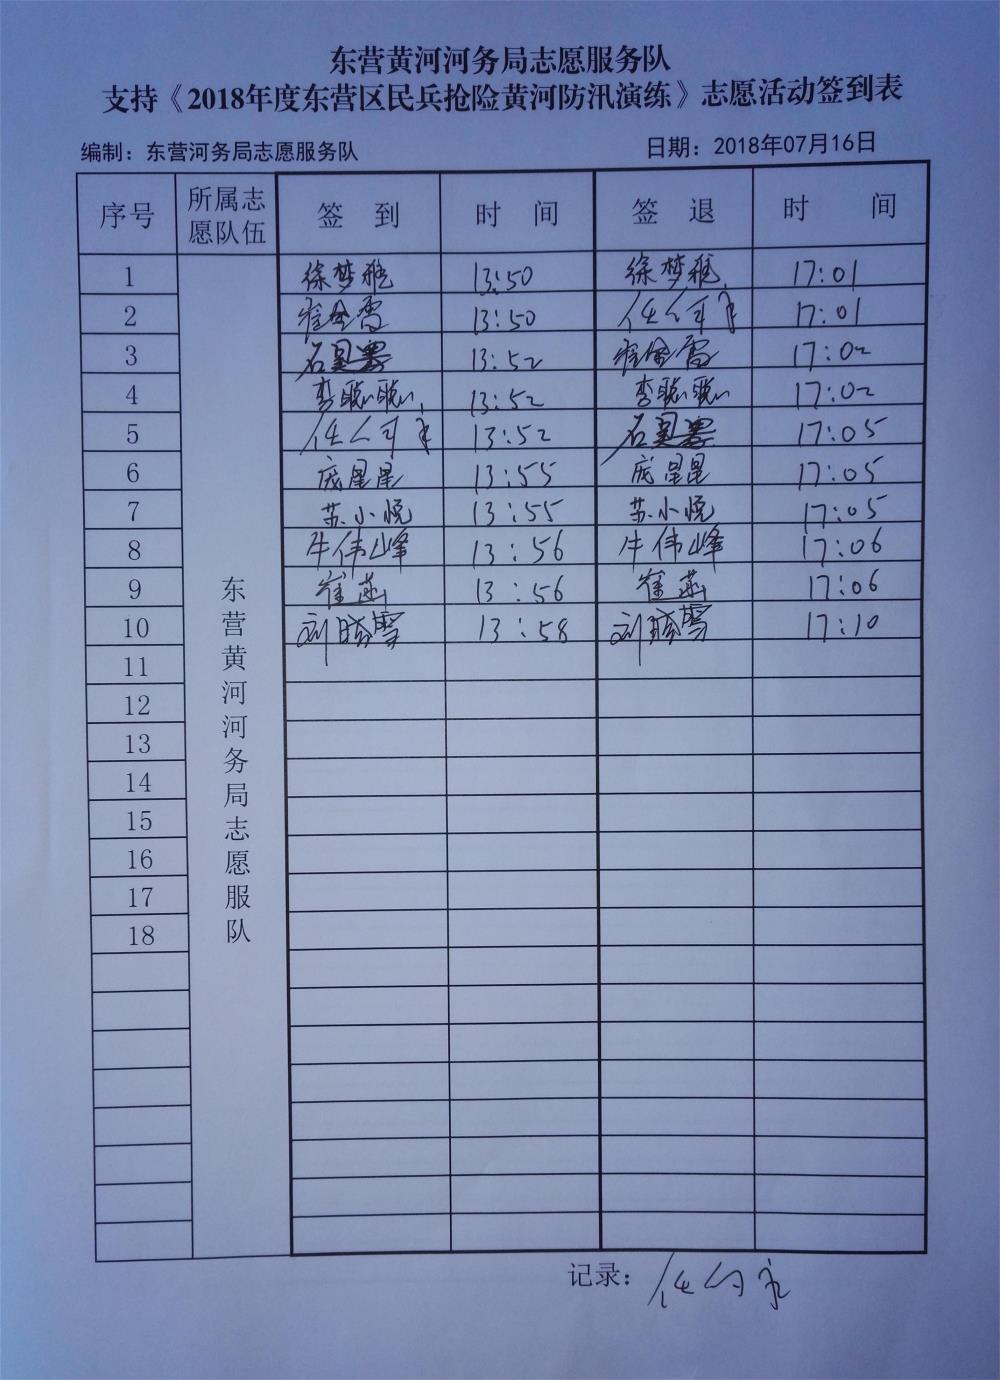 东营黄河河务局志愿服务队
支持《2018年度东营区民兵抢险黄河防汛演练》志愿活动签到表
编制：东营河务局志愿服务队 日期：2018年07月16日
序号 所属志愿队伍 签 到 时 间 签 退 时 间
1 徐梦雅 13:50 徐梦雅 17:01
2 13:50 17:01
3 13:52 17:02
4 李聪聪 13:52 李聪聪 17:02
5 13:52 17:05
6 庞星星 13:55 庞星星 17:05
7 苏小悦 13:55 苏小悦 17:05
8 牛伟峰 13:56 牛伟峰 17:06
9 崔燕 13:56 崔燕 17:06
10 刘晓雪 13:58 刘晓雪 17:10
11
12
13
14
15
16
17
18
东营黄河河务局志愿服务队
记录：